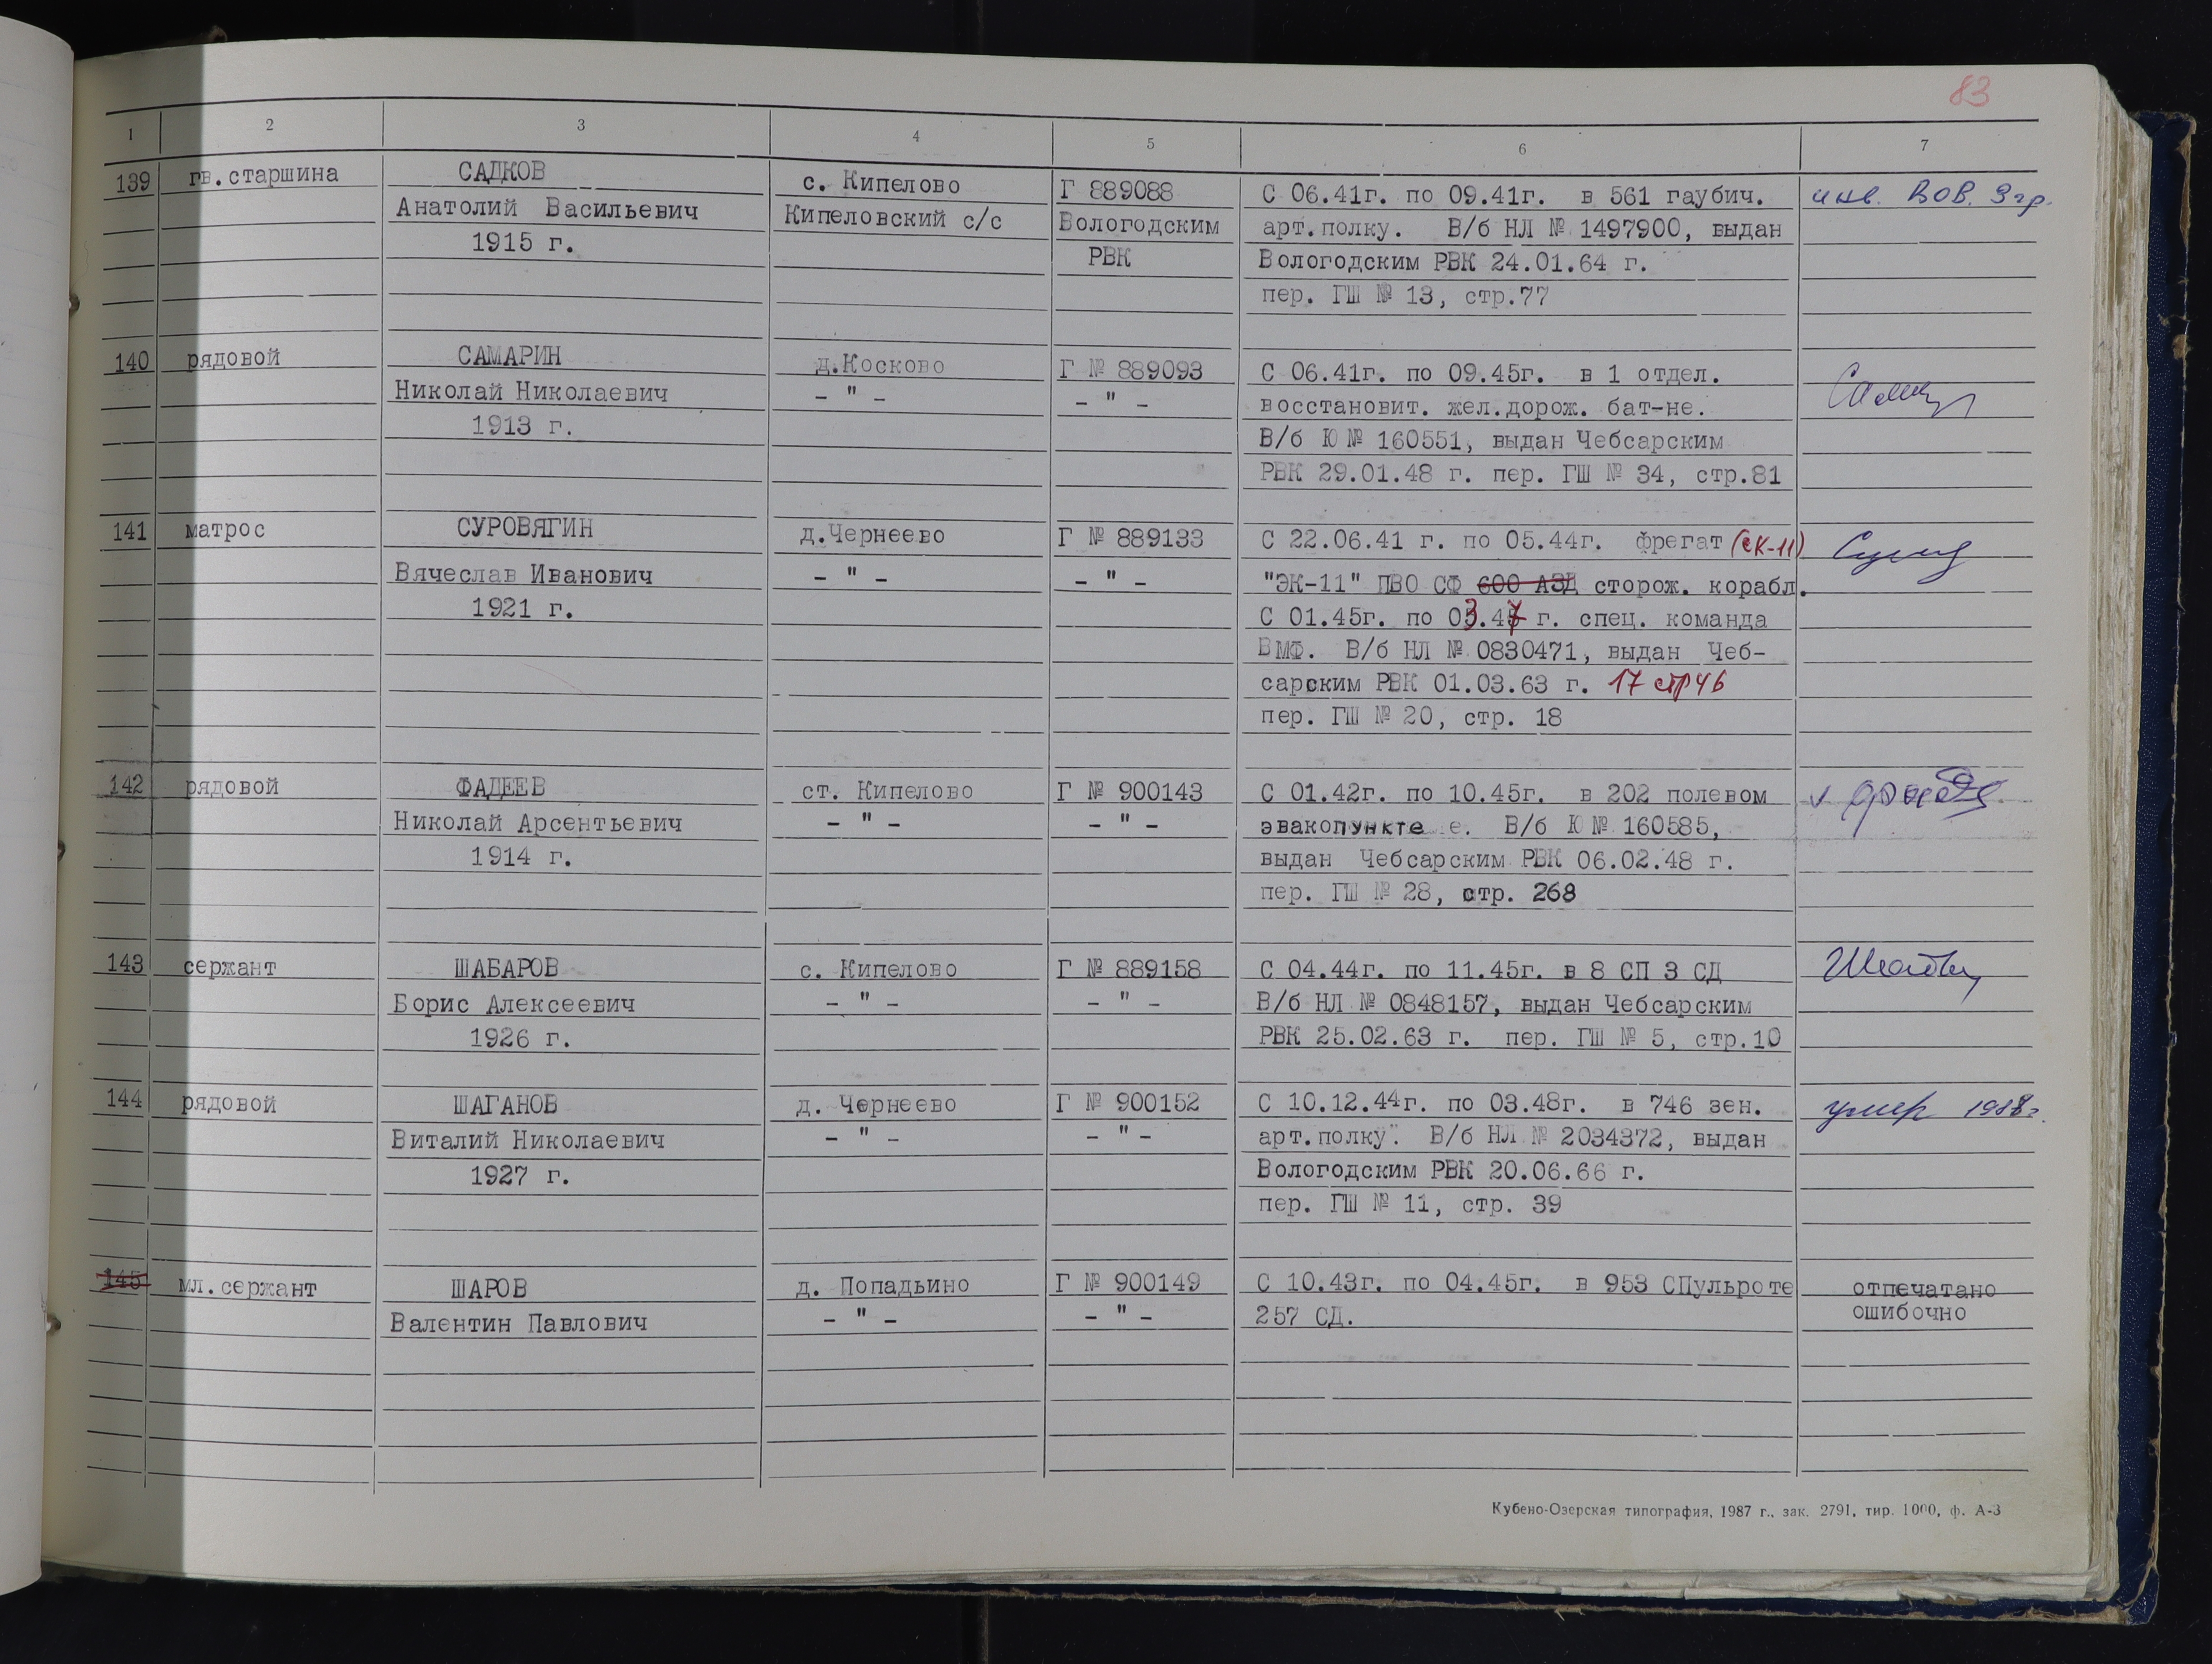 83
1 2 3 4 5 6 7
139 гв.старшина САДКОВ с. Кипелово Г 889088 С 06.41г. по 09.41г. в 561 гаубич. инв. ВОВ. 3 гр.
Анатолий Васильевич Кипеловский с/с Вологодским арт.полку. В/б НЛ № 1497900, выдан
1915 г. РВК Вологодским РВК 24.01.64 г.
пер. ГШ № 13, стр.77
140 рядовой САМАРИН д.Косково Г № 889093 С 06.41г. по 09.45г. в 1 отдел.
Николай Николаевич - " - - " - восстановит. жел.дорож. бат-не.
1913 г. В/б Ю № 160551, выдан Чебсарским
РВК 29.01.48 г. пер. ГШ № 34, стр.81
141 матрос СУРОВЯГИН д.Чернеево Г № 889133 С 22.06.41 г. по 05.44г. фрегат (СК-11)
Вячеслав Иванович - " - - " - "ЭК-11" ПВО СФ 600 АЗД сторож. корабл.
1921 г. С 01.45г. по 03.47 г. спец. команда
ВМФ. В/б НЛ № 0830471, выдан Чеб-
сарским РВК 01.03.63 г. 17 стр 46
пер. ГШ № 20, стр. 18
142 рядовой ФАДЕЕВ ст. Кипелово Г № 900143 С 01.42г. по 10.45г. в 202 полевом
Николай Арсентьевич - " - - " - эвакопункте е. В/б Ю № 160585,
1914 г. выдан Чебсарским РВК 06.02.48 г.
пер. ГШ № 28, стр. 268
143 сержант ШАБАРОВ с. Кипелово Г № 889158 С 04.44г. по 11.45г. в 8 СП 3 СД
Борис Алексеевич - " - - " - В/б НЛ № 0848157, выдан Чебсарским
1926 г. РВК 25.02.63 г. пер. ГШ № 5, стр.10
144 рядовой ШАГАНОВ д. Чернеево Г № 900152 С 10.12.44г. по 03.48г. в 746 зен. умер 1988г.
Виталий Николаевич - " - - " - арт.полку. В/б НЛ № 2034372, выдан
1927 г. Вологодским РВК 20.06.66 г.
пер. ГШ № 11, стр. 39
145 мл.сержант ШАРОВ д. Попадьино Г № 900149 С 10.43г. по 04.45г. в 953 СПульроте отпечатано
Валентин Павлович - " - - " - 257 СД. ошибочно
Кубено-Озерская типография, 1987 г., зак. 2791, тир. 1000, ф. А-3